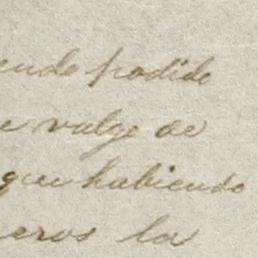 endo podido
e valge de
que habiendo
neros la